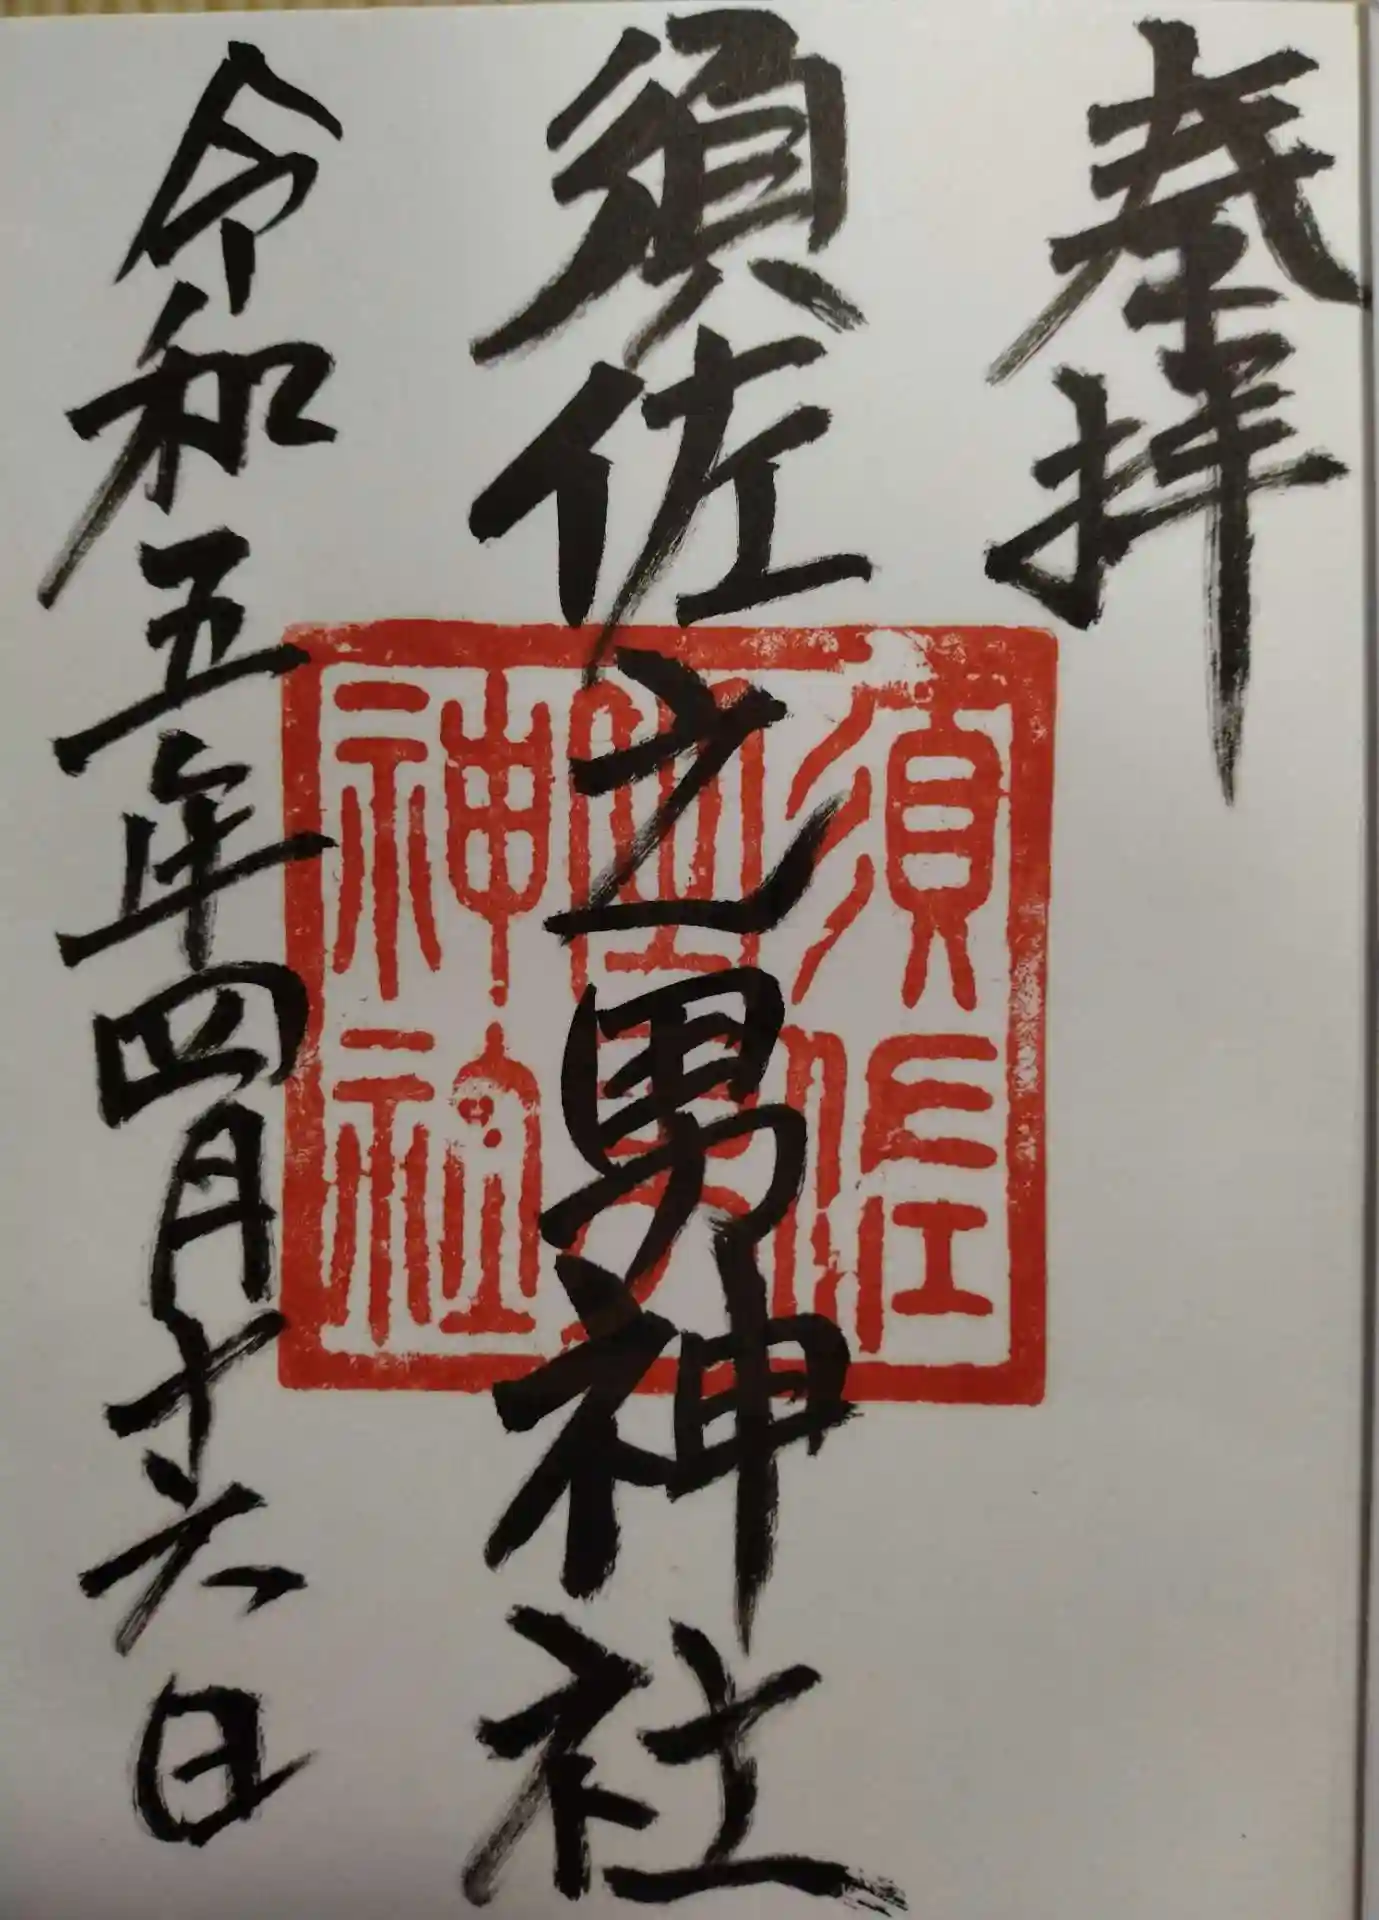 奉拝
須佐之男神社
須佐
之男
神社
令和五年四月十六日